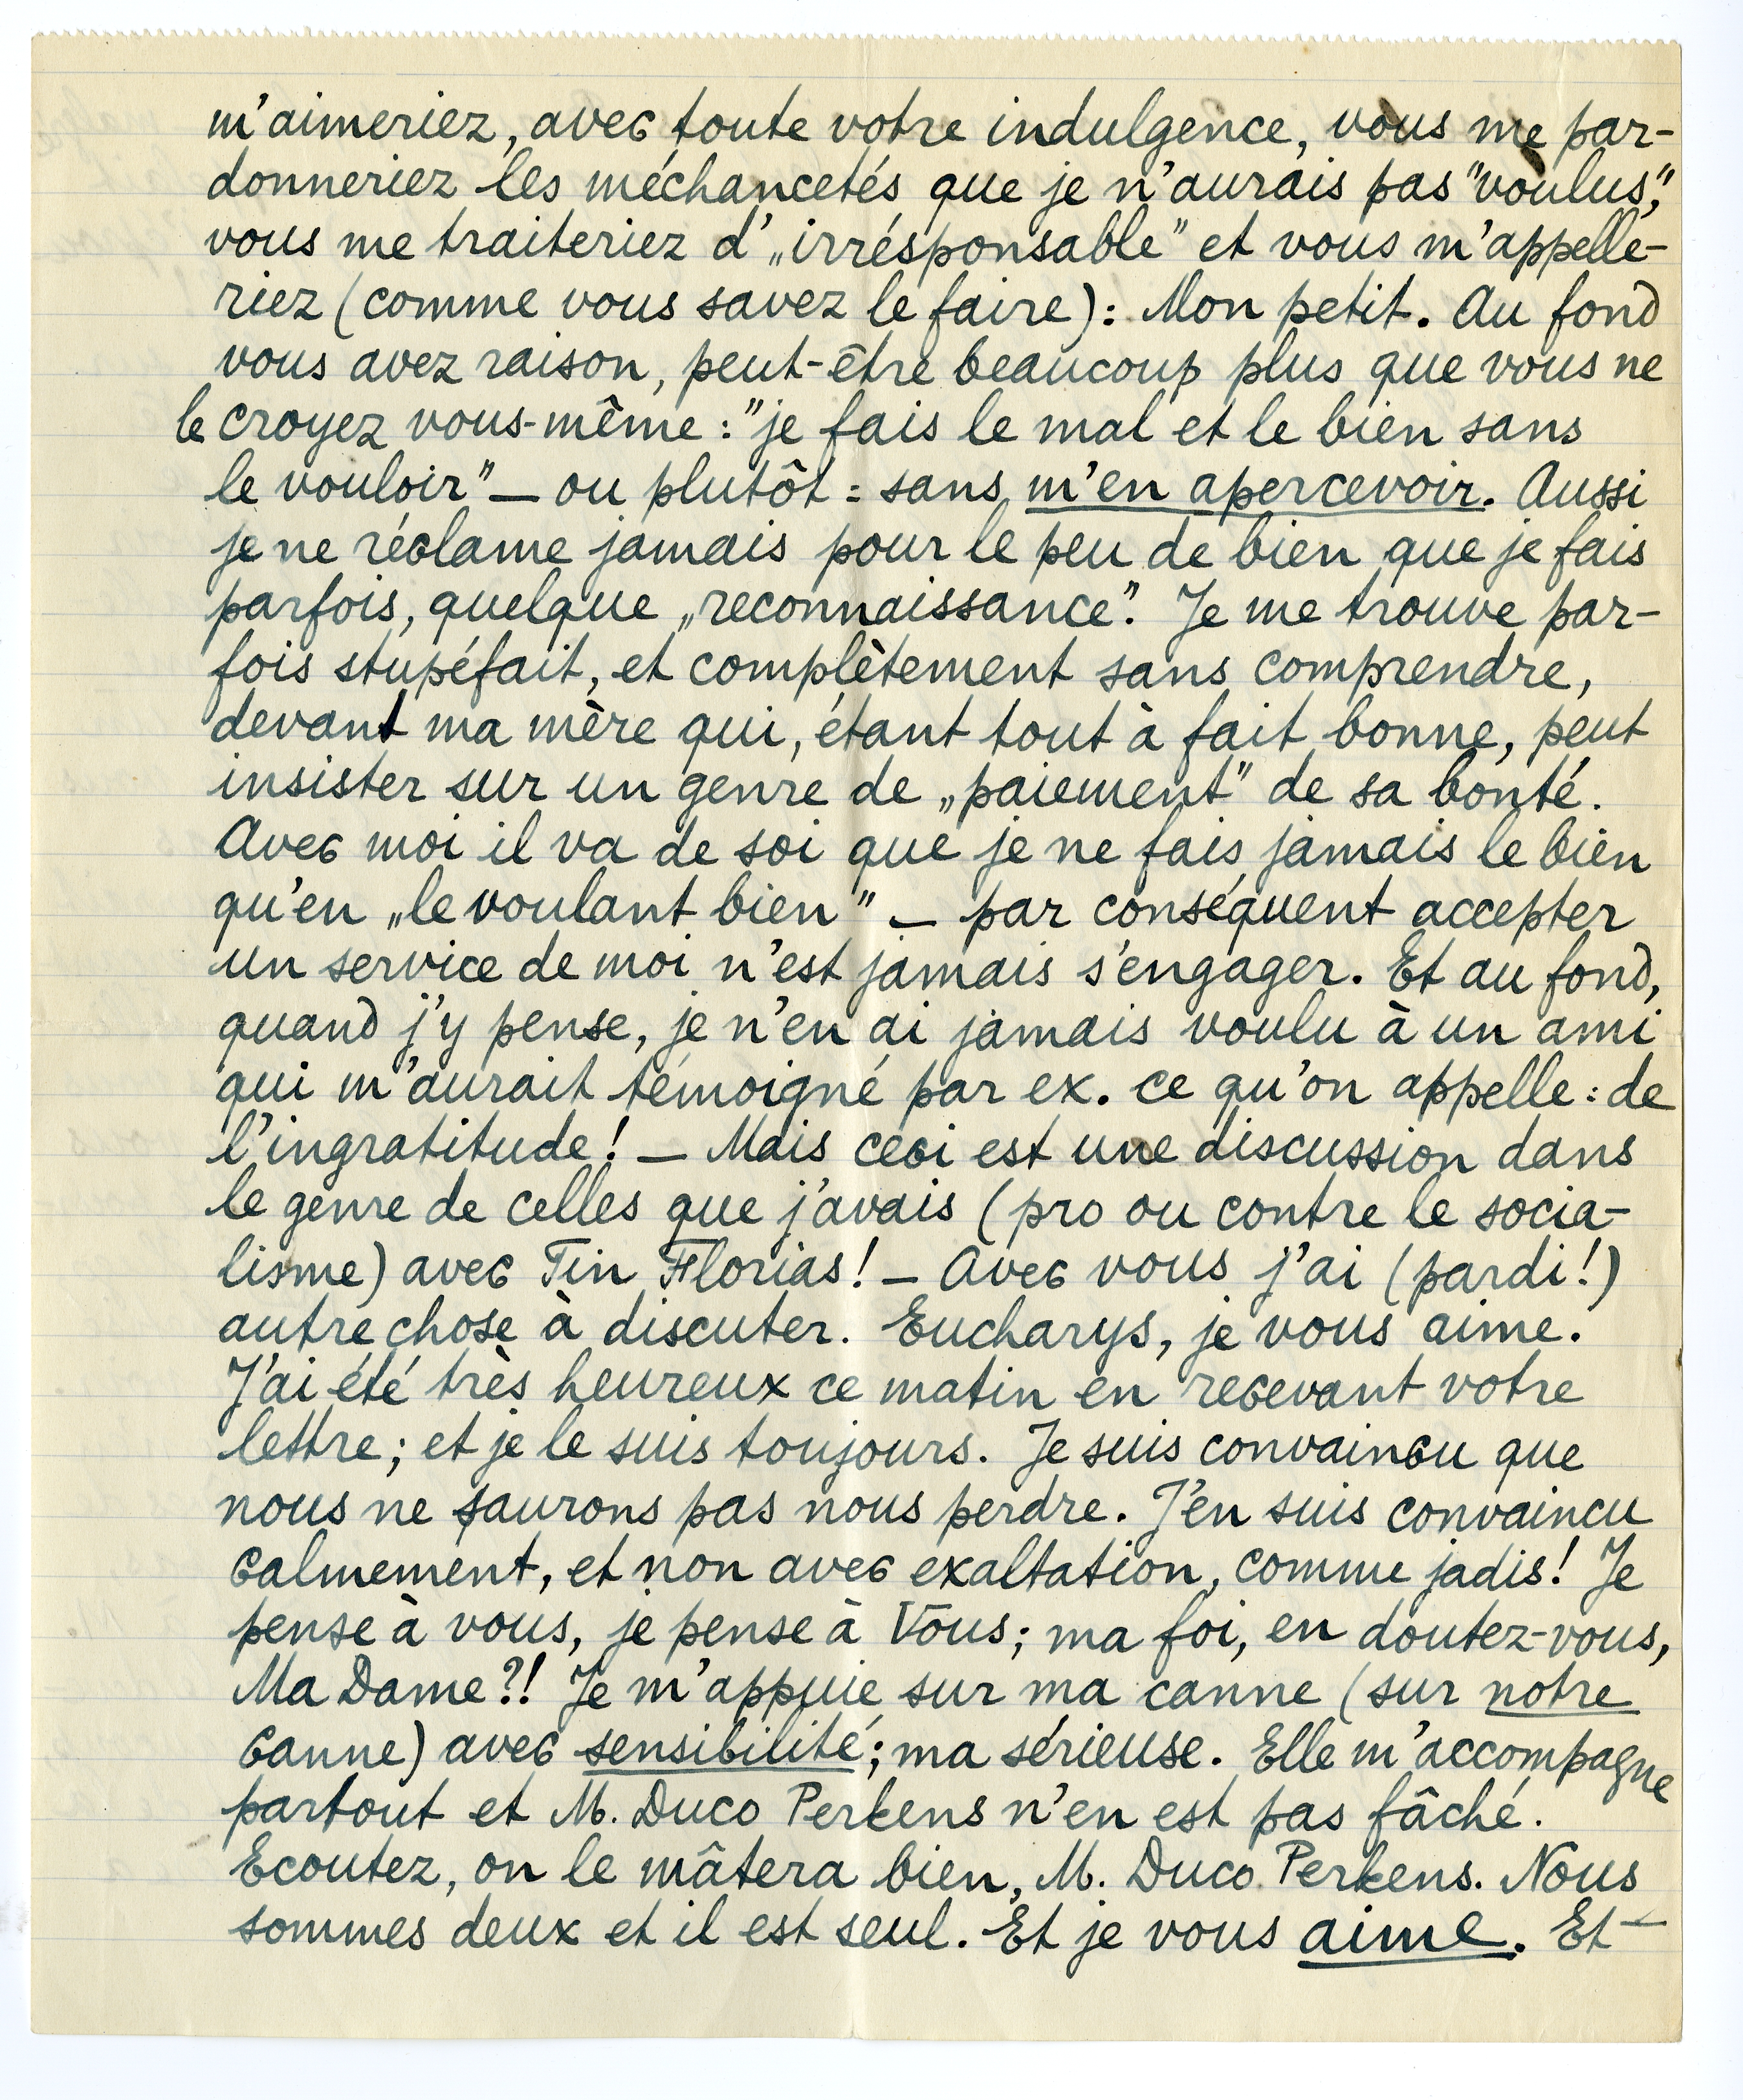 m'aimeriez, avec toute votre indulgence, vous me par-
donneriez les méchancetés que je n'aurais pas "voulus",
vous me traiteriez d' „irrésponsable" et vous m'appelle-
riez (comme vous savez le faire): Mon petit. Au fond
vous avez raison, peut-être beaucoup plus que vous ne
le croyez vous-même : "je fais le mal et le bien sans
le vouloir" — ou plutôt : sans m'en apercevoir. Aussi
je ne réclame jamais pour le peu de bien que je fais
parfois, quelque „reconnaissance". Je me trouve par-
fois stupéfait, et complètement sans comprendre,
devant ma mère qui, étant tout à fait bonne, peut
insister sur un genre de „paiement" de sa bonté.
Avec moi il va de soi que je ne fais jamais le bien
qu'en „le voulant bien" — par conséquent accepter
un service de moi n'est jamais s'engager. Et au fond,
quand j'y pense, je n'en ai jamais voulu à un ami
qui m'aurait témoigné par ex. ce qu'on appelle : de
l'ingratitude! — Mais ceci est une discussion dans
le genre de celles que j'avais (pro ou contre le socia-
lisme) avec Tin Florias! — Avec vous j'ai (pardi!)
autre chose à discuter. Eucharys, je vous aime.
J'ai été très heureux ce matin en recevant votre
lettre; et je le suis toujours. Je suis convaincu que
nous ne saurons pas nous perdre. J'en suis convaincu
calmement, et non avec exaltation, comme jadis! Je
pense à vous, je pense à Vous; ma foi, en doutez-vous,
Ma Dame?! Je m'appuie sur ma canne (sur notre
canne) avec sensibilité; ma sérieuse. Elle m'accompagne
partout et M. Duco Perkens n'en est pas fâché.
Ecoutez, on le mâtera bien, M. Duco Perkens. Nous
sommes deux et il est seul. Et je vous aime. Et —